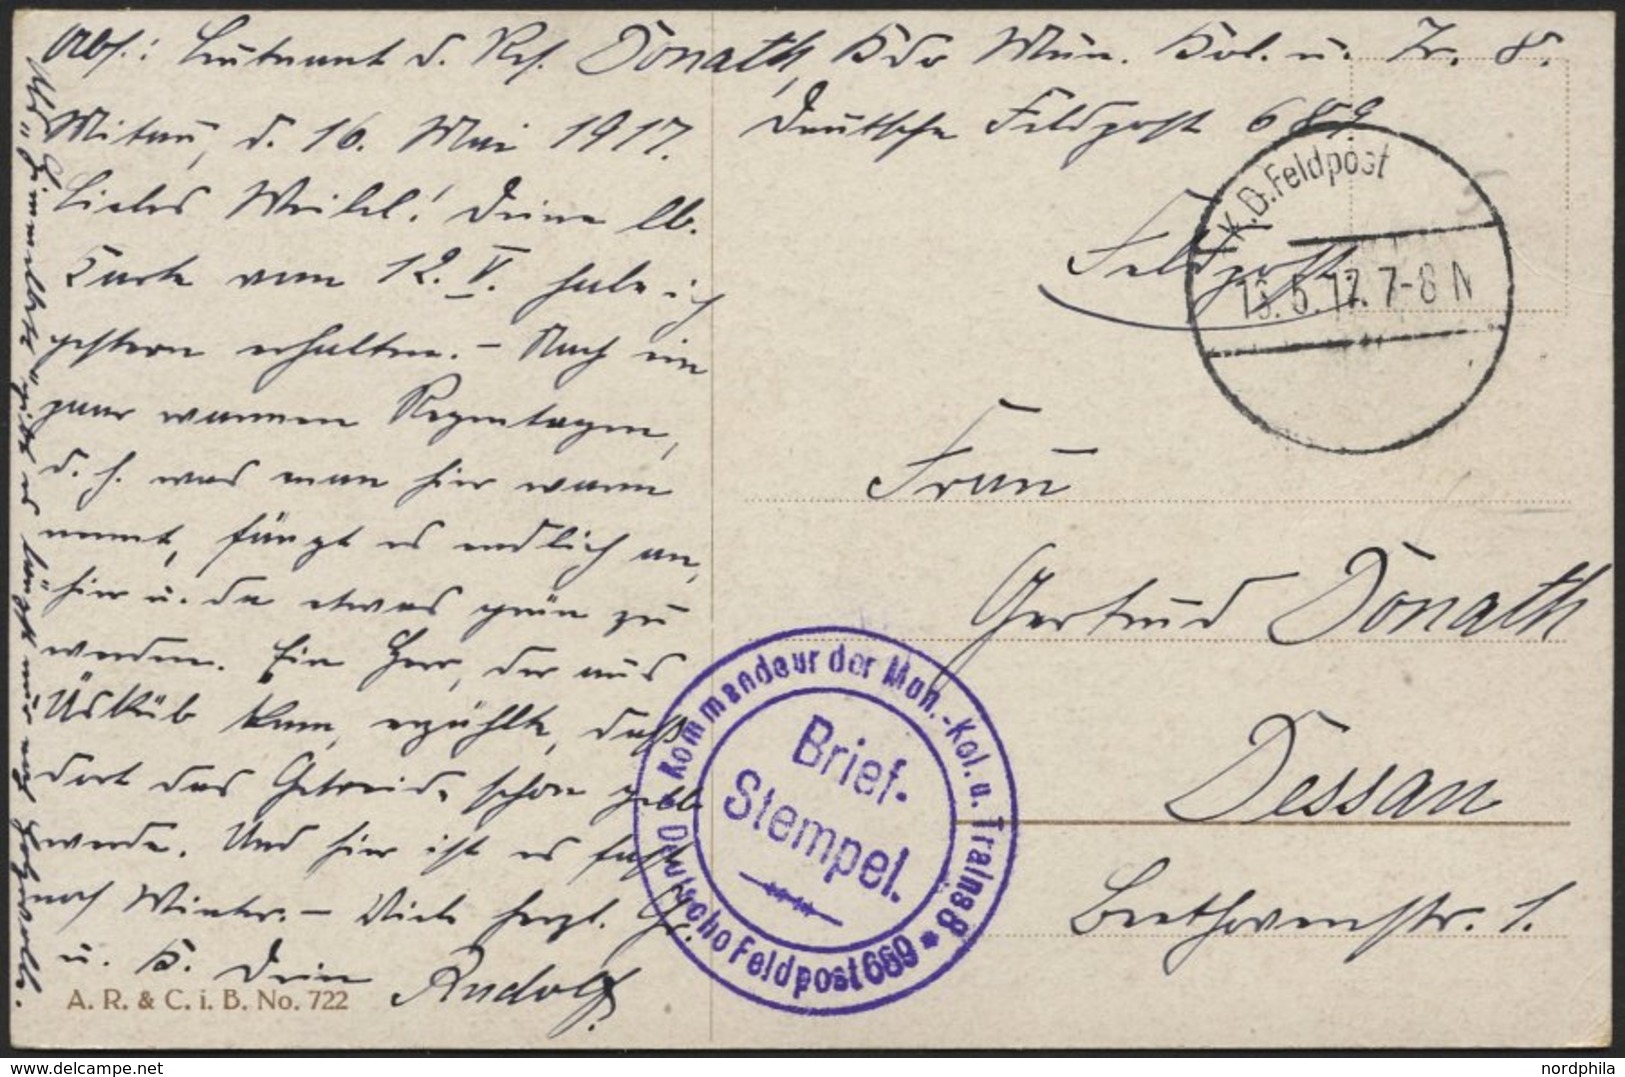 Abs.: Leutnant d. Res. Donath, Kdr Mun. Kol. u. Tr. 8.
Deutsche Feldpost 689
Mitau, d. 16. Mai 1917.
Liebes Weibel! Deine lb.
Karte vom 12. V. habe ich
gestern erhalten. – Nach ein
paar warmen Regentagen,
d. h. was man hier warm
nennt, fängt es endlich an,
hier u. da etwas grün zu
werden. Ein Herr, der aus
Üsküb kam, erzählte, daß
dort das Getreide schon gelb
werde. Und hier ist es fast
noch Winter. – Viele herzl. Gr.
u. K. Dein Rudolf.
"Himmelbett" gibt es längst nur noch
A. R. & C. i. B. No. 722
Feldpost.
K.D. Feldpost
16.5.17. 7-8 N
Frau
Gertrud Donath
Dessau
Beethovenstr. 1.
Kommandeur der Mun.-Kol. u. Trains 8 * Deutsche Feldpost 669 *
Brief-
Stempel.
nordphila